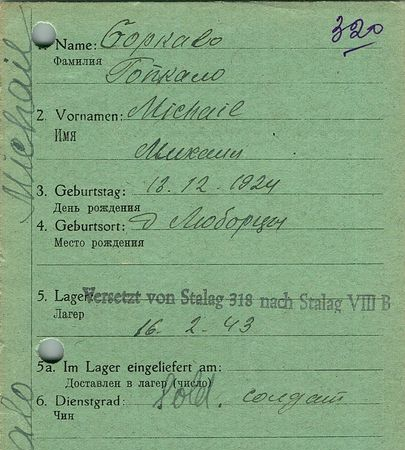 320
Name:
Фамилия
2. Vornamen: Michail
Имя
Михаил
3. Geburtstag: 13.12.1924
День рождения
4. Geburtsort: д Люборцы
Место рождения
5. Lager: Versetzt von Stalag 318 nach Stalag VIII B
Лагер
16. 2. 43
5a. Im Lager eingeliefert am:
Доставлен в лагер (число)
6. Dienstgrad: Sold. солдат
Чин
Michail